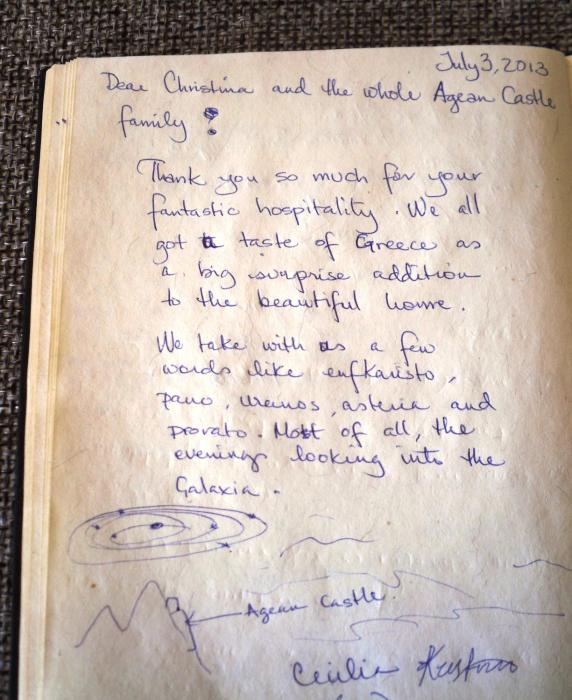 July 3, 2013
Dear Christina and the whole Agean Castle
family !
Thank you so much for your
fantastic hospitality. We all
got a taste of Greece as
a big surprise addition
to the beautiful home.
We take with us a few
words like enfkaristo,
pano, urenos, asteria and
provato. Most of all, the
evenings looking into the
Galaxia.
Agean Castle.
Cecilia